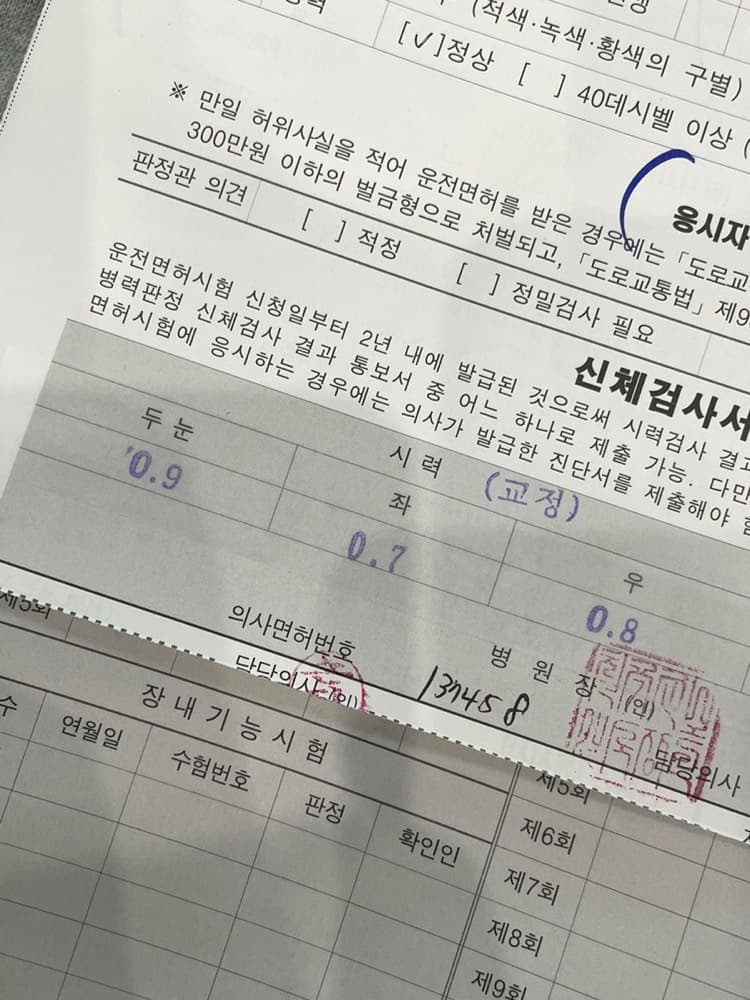 (적색·녹색·황색의 구별)
[√]정상 [ ] 40데시벨 이상 (
※ 만일 허위사실을 적어 운전면허를 받은 경우에는 「도로교
300만원 이하의 벌금형으로 처벌되고, 「도로교통법」 제9
응시자
판정관 의견 [ ] 적정 [ ] 정밀검사 필요
신체검사서
운전면허시험 신청일부터 2년 내에 발급된 것으로써 시력검사 결과
병력판정 신체검사 결과 통보서 중 어느 하나로 제출 가능. 다만
면허시험에 응시하는 경우에는 의사가 발급한 진단서를 제출해야 함
시력 (교정)
두 눈 좌 우
0.9 0.7 0.8
의사면허번호 137458
병 원 장 (인)
담당의사 (인)
담당의사
제5회
장내기능시험
수 연월일 수험번호 판정 확인인
제5회
제6회
제7회
제8회
제9회